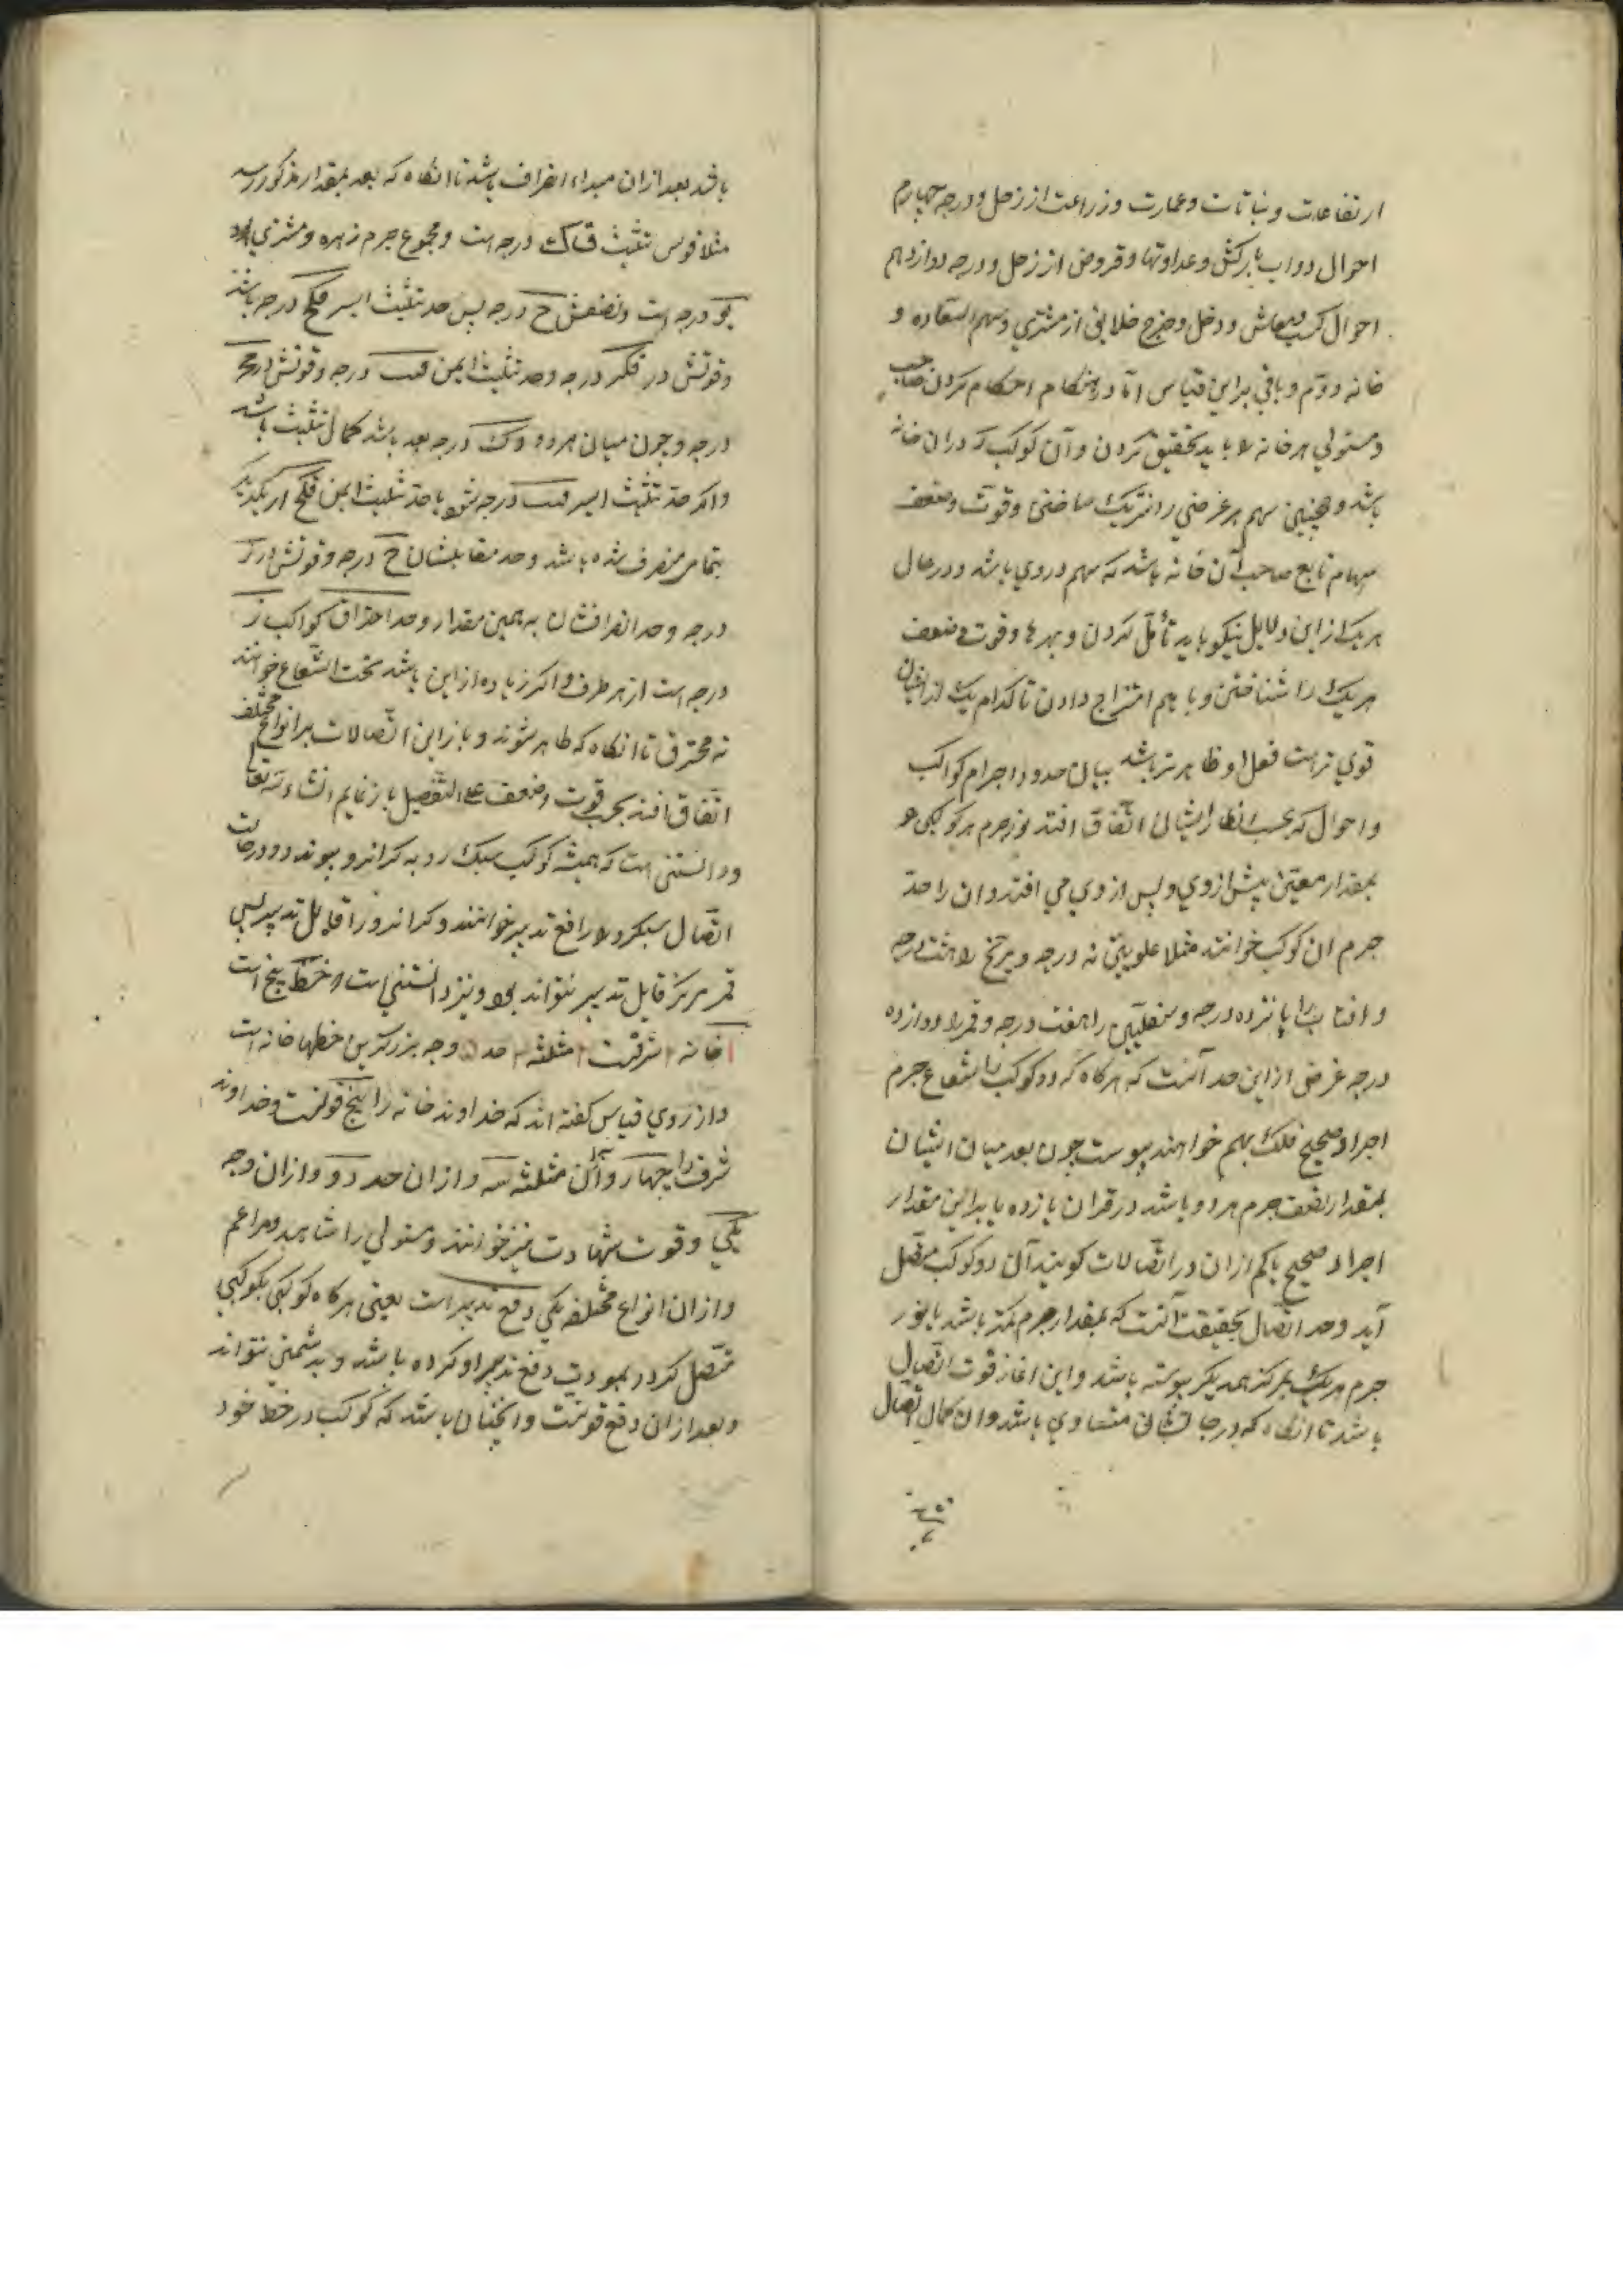 ارتفاعات و نباتات و عمارت و زراعت از زحل و درجه چهارم
احوال دواب بارکش و عداوتها و قروض از زحل و درجه دوازدهم
احوال کسب و معاش و دخل و خرج خلایق از مشتری و سهم السعاده و
خانه دوم و باقی براین قیاس اما در هنکام احکام کردن صاحب
و مستولی هر خانه را باید تحقیق کردن و آن کوکب که دران خانه
باشد و همچنین سهم هر غرضی را شریک ساختن و قوت و ضعف
سهام تابع صاحب آن خانه باشد که سهم دروی باشد و در حال
هریک ازاین دلایل نیکو باید تأمل کردن و بهرها و قوت و ضعف
هریک را شناختن و با هم امتزاج دادن تا کدام یک از ایشان
قوی تر است فعل او ظاهرتر باشد بیان حدود اجرام کواکب
و احوال که بحسب انظار ایشان اتفاق افتد نور جرم هر کوکبی
بمقدار معین پیش از وی و پس از وی می افتد و ان را حد
جرم ان کوکب خوانند مثلا علویین نه درجه و مریخ را هشت درجه
و افتاب را پانزده درجه و سفلیین را هفت درجه و قمر را دوازده
درجه غرض ازاین حد آنست که هرکاه که دو کوکب را شعاع جرم
اجراء صحیح فلک بهم خواهند پیوست چون بعد میان ایشان
بمقدار نصف جرم هردو باشد در قران یا زده یا براین مقدار
اجراء صحیح یا کم ازان در اتصالات کویند آن دو کوکب متصل
آید و حد اتصال بحقیقت آنست که بمقدار جرم کمتر باشد یا نور
جرم هریک بمرکز همدیکر پیوسته باشد و این اغاز قوت اتصال
باشد تا انکاه که درجات شان متساوی باشد و ان کمال اتصال
باشد بعد ازان مبداء انصراف باشد تا انکاه که بعد بمقدار مذکور رسد
مثلا قوس تثلیث قک درجه است و مجموع جرم زهره و مشتری
یو درجه است و نصفش ح درجه پس حد تثلیث ایسر قکح درجه باشد
و قوتش در قکد درجه و حد تثلیث ایمن قیب درجه و قوتش در
درجه و چون میان هردو قک درجه بعد باشد کمال تثلیث باشد
و اکر حد تثلیث ایسر قیب درجه شود یا حد تثلیث ایمن قکح از یکدیکر
بتمامی منصرف شده باشد و حد مقابلشان ح درجه و قوتش در
درجه و حد انصرافشان به همین مقدار و حد احتراق کواکب ز
درجه است از هر طرف و اکر زیاده ازاین باشد تحت الشعاع خوانند
نه محترق تا انکاه که ظاهر شوند و باز این اتصالات بر انواع مختلف
اتفاق افتد بحسب قوت و ضعف علی التفصیل باز نمایم انشاء الله تعالی
و دانستنی است که همیشه کوکب سبک رو به کرانرو پیوندد و در حالت
اتصال سبکرو را رافع تدبیر خوانند و کرانرو را قابل تدبیر پس
قمر هرکز قابل تدبیر نتواند بود و نیز دانستنی است که خط پنج است
۱ خانه ۲ شرفست ۳ مثلثه ۴ حد ۵ وجه بزرکترین خطها خانه است
و از روی قیاس کفته اند که خداوند خانه را پنج قوتست و خداوند
شرف را چهار و از ان مثلثه سه و ازان حد دو و ازان وجه
یکی و قوت شهادت نیز خوانند و مستولی را شاهد و مزاعم
و ازان انواع مختلفه یکی دفع تدبیر است یعنی هرکاه کوکبی بکوکبی
متصل کردد بمودت دفع تدبیر او کرده باشد و بدشمنی نتواند
و بعد ازان دفع قوتست و انچنان باشد که کوکب در خط خود